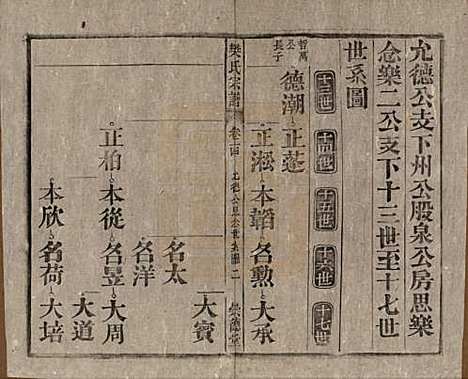 允德公支下州公股泉公房思樂
念樂二公支下十三世至十七世
世系圖
十三世 十四世 十五世 十六世 十七世
哲萬
公
長子
德潮 正蓬
正淞 本韜 名勳 大承
樊氏宗譜 卷十四
大賓
名太
名洋
正柏 本從 名昱 大周
大道
本欣 名荷 大培